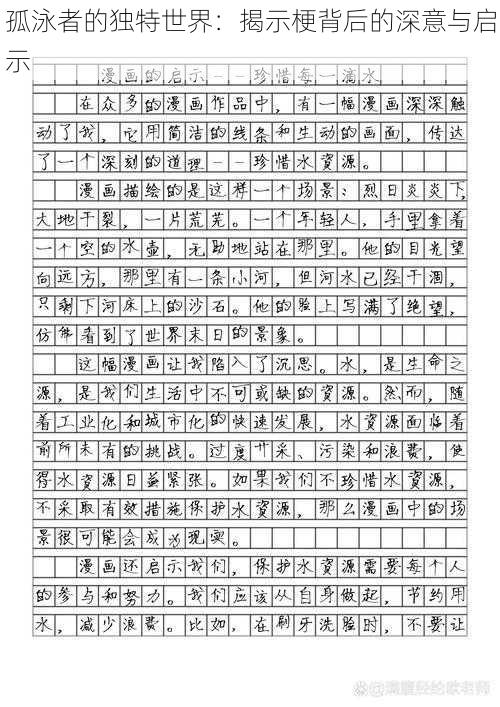 孤泳者的独特世界：揭示梗背后的深意与启
示
漫画的启示--珍惜每一滴水
在众多的漫画作品中，有一幅漫画深深触
动了我，它用简洁的线条和生动的画面，传达
了一个深刻的道理--珍惜水資源。
漫画描绘的是这样一个场景：烈日炎炎下，
大地干裂，一片荒芜。一个年轻人，手里拿着
一个空的水壶，无助地站在那里。他的目光望
向远方，那里有一条小河，但河水已经干涸，
只剩下河床上的沙石。他的脸上写满了绝望，
仿佛看到了世界末日的景象。
这幅漫画让我陷入了沉思。水，是生命之
源，是我们生活中不可或缺的資源。然而，随
着工业化和城市化的快速发展，水資源面临着
前所未有的挑战。过度开采、污染和浪费，使
得水資源日益紧张。如果我们不珍惜水資源，
不采取有效措施保护水資源，那么漫画中的场
景很可能会成为现实。
漫画还启示我们，保护水資源需要每个人
的参与和努力。我们应该从自身做起，节约用
水，减少浪费。比如，在刷牙洗脸时，不要让
@满腹经纶歌老师